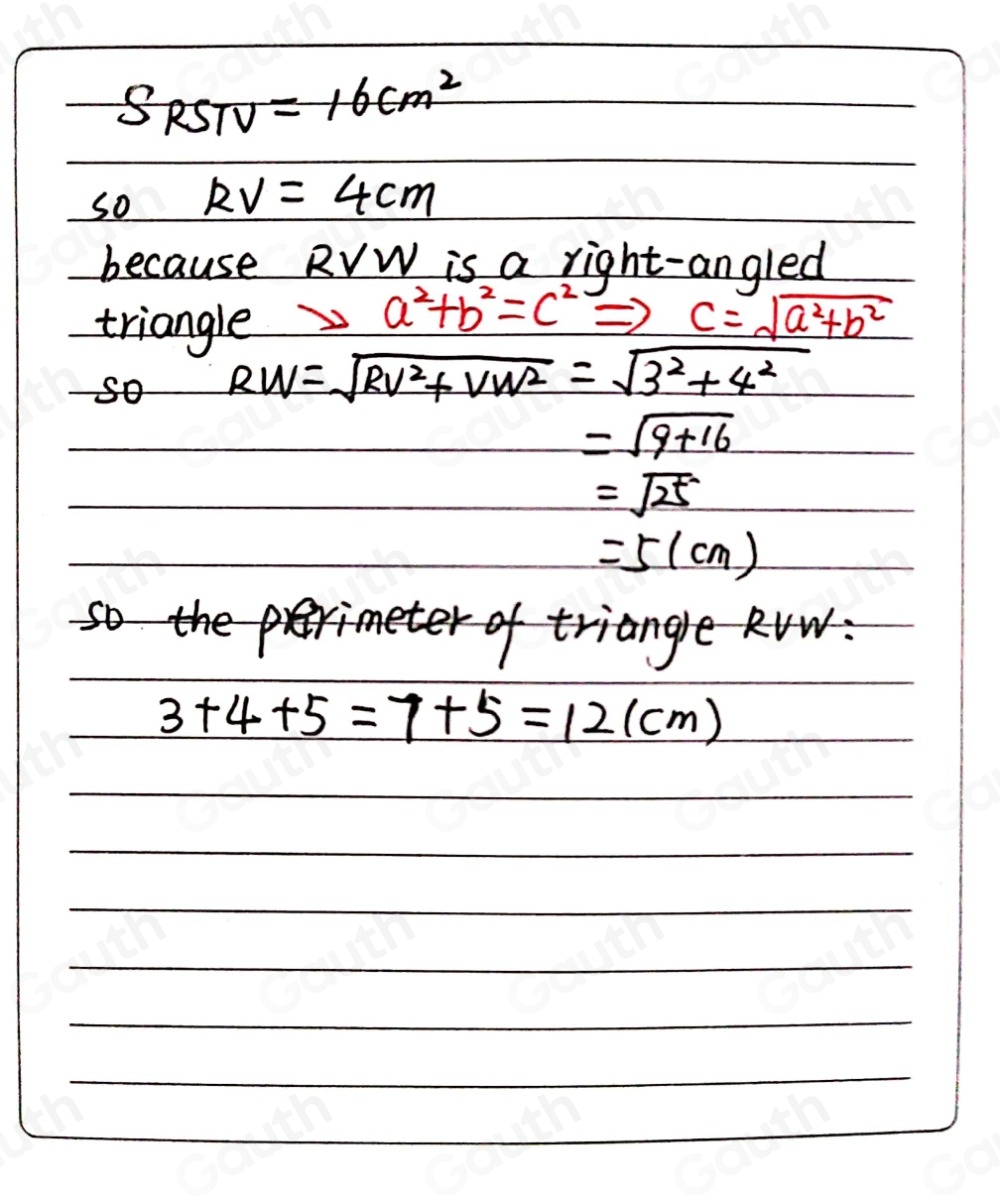 S RSTV = 16cm²
so RV = 4cm
because RVW is a right-angled
triangle ↘ a²+b²=c² ⇒ c=√a²+b²
so RW=√RV²+VW² = √3²+4²
=√9+16
=√25
=5(cm)
so the perimeter of triangle RVW:
3+4+5=7+5=12(cm)
Gauth